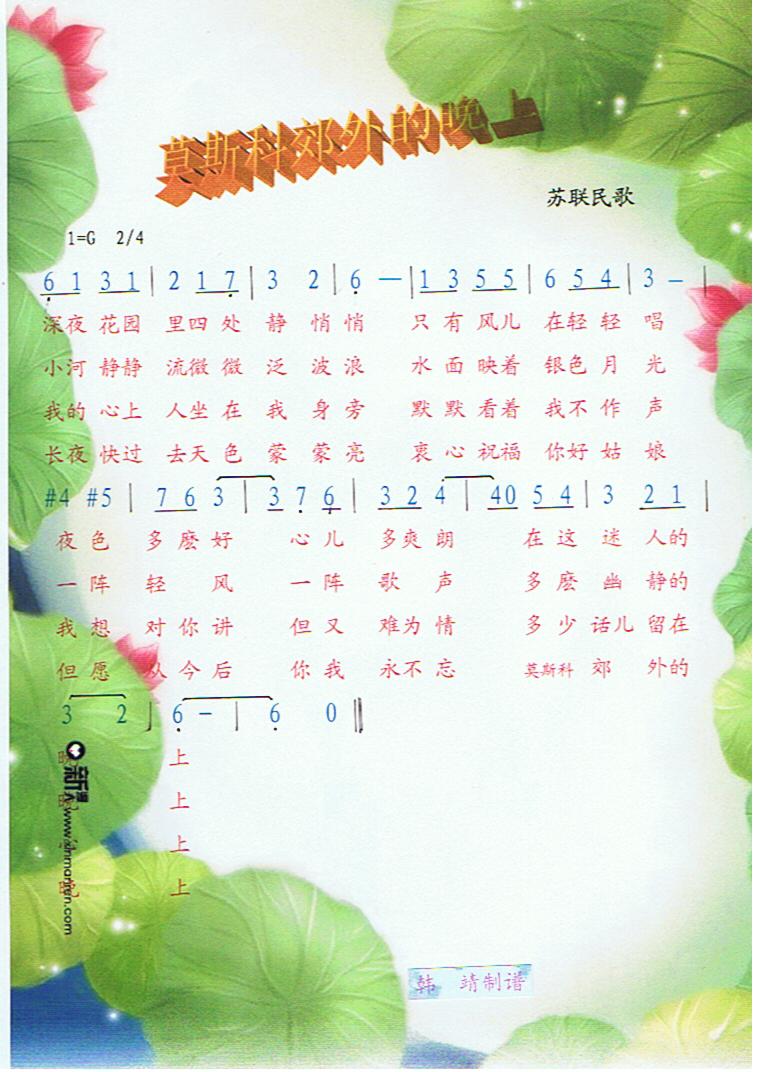 莫斯科郊外的晚上
苏联民歌
1=G 2/4
6 1 3 1 | 2 1 7 | 3 2 | 6 — | 1 3 5 5 | 6 5 4 | 3 – |
深夜 花园 里四 处 静 悄 悄 只 有 风儿 在轻 轻 唱
小河 静静 流微 微 泛 波 浪 水 面 映着 银色 月 光
我的 心上 人坐 在 我 身 旁 默 默 看着 我不 作 声
长夜 快过 去天 色 蒙 蒙 亮 衷 心 祝福 你好 姑 娘
#4 #5 | 7 6 3 | 3 7 6 | 3 2 4 | 40 5 4 | 3 2 1 |
夜 色 多 麽 好 心 儿 多爽 朗 在 这 迷 人的
一 阵 轻 风 一 阵 歌 声 多 麽 幽 静的
我 想 对 你 讲 但 又 难为 情 多 少 话儿 留在
但 愿 从 今 后 你 我 永不 忘 莫斯科 郊 外的
3 2 | 6 – | 6 0 ||
上
上
上
晚 上
新
www.xinmanyuan.com
韩 靖制谱